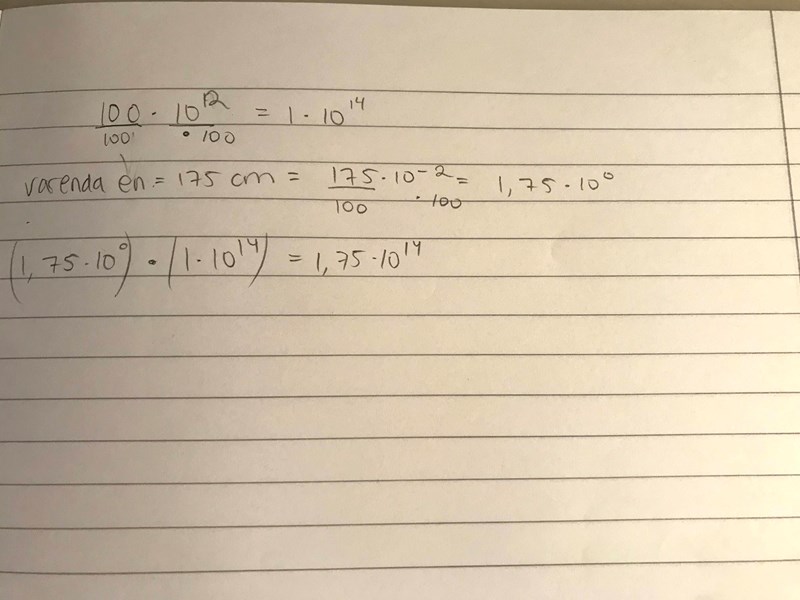 100 · 10¹² = 1 · 10¹⁴
100 · 100
varenda en = 175 cm = 175 · 10⁻² = 1,75 · 10⁰
100 · 100
(1,75 · 10⁰) · (1 · 10¹⁴) = 1,75 · 10¹⁴